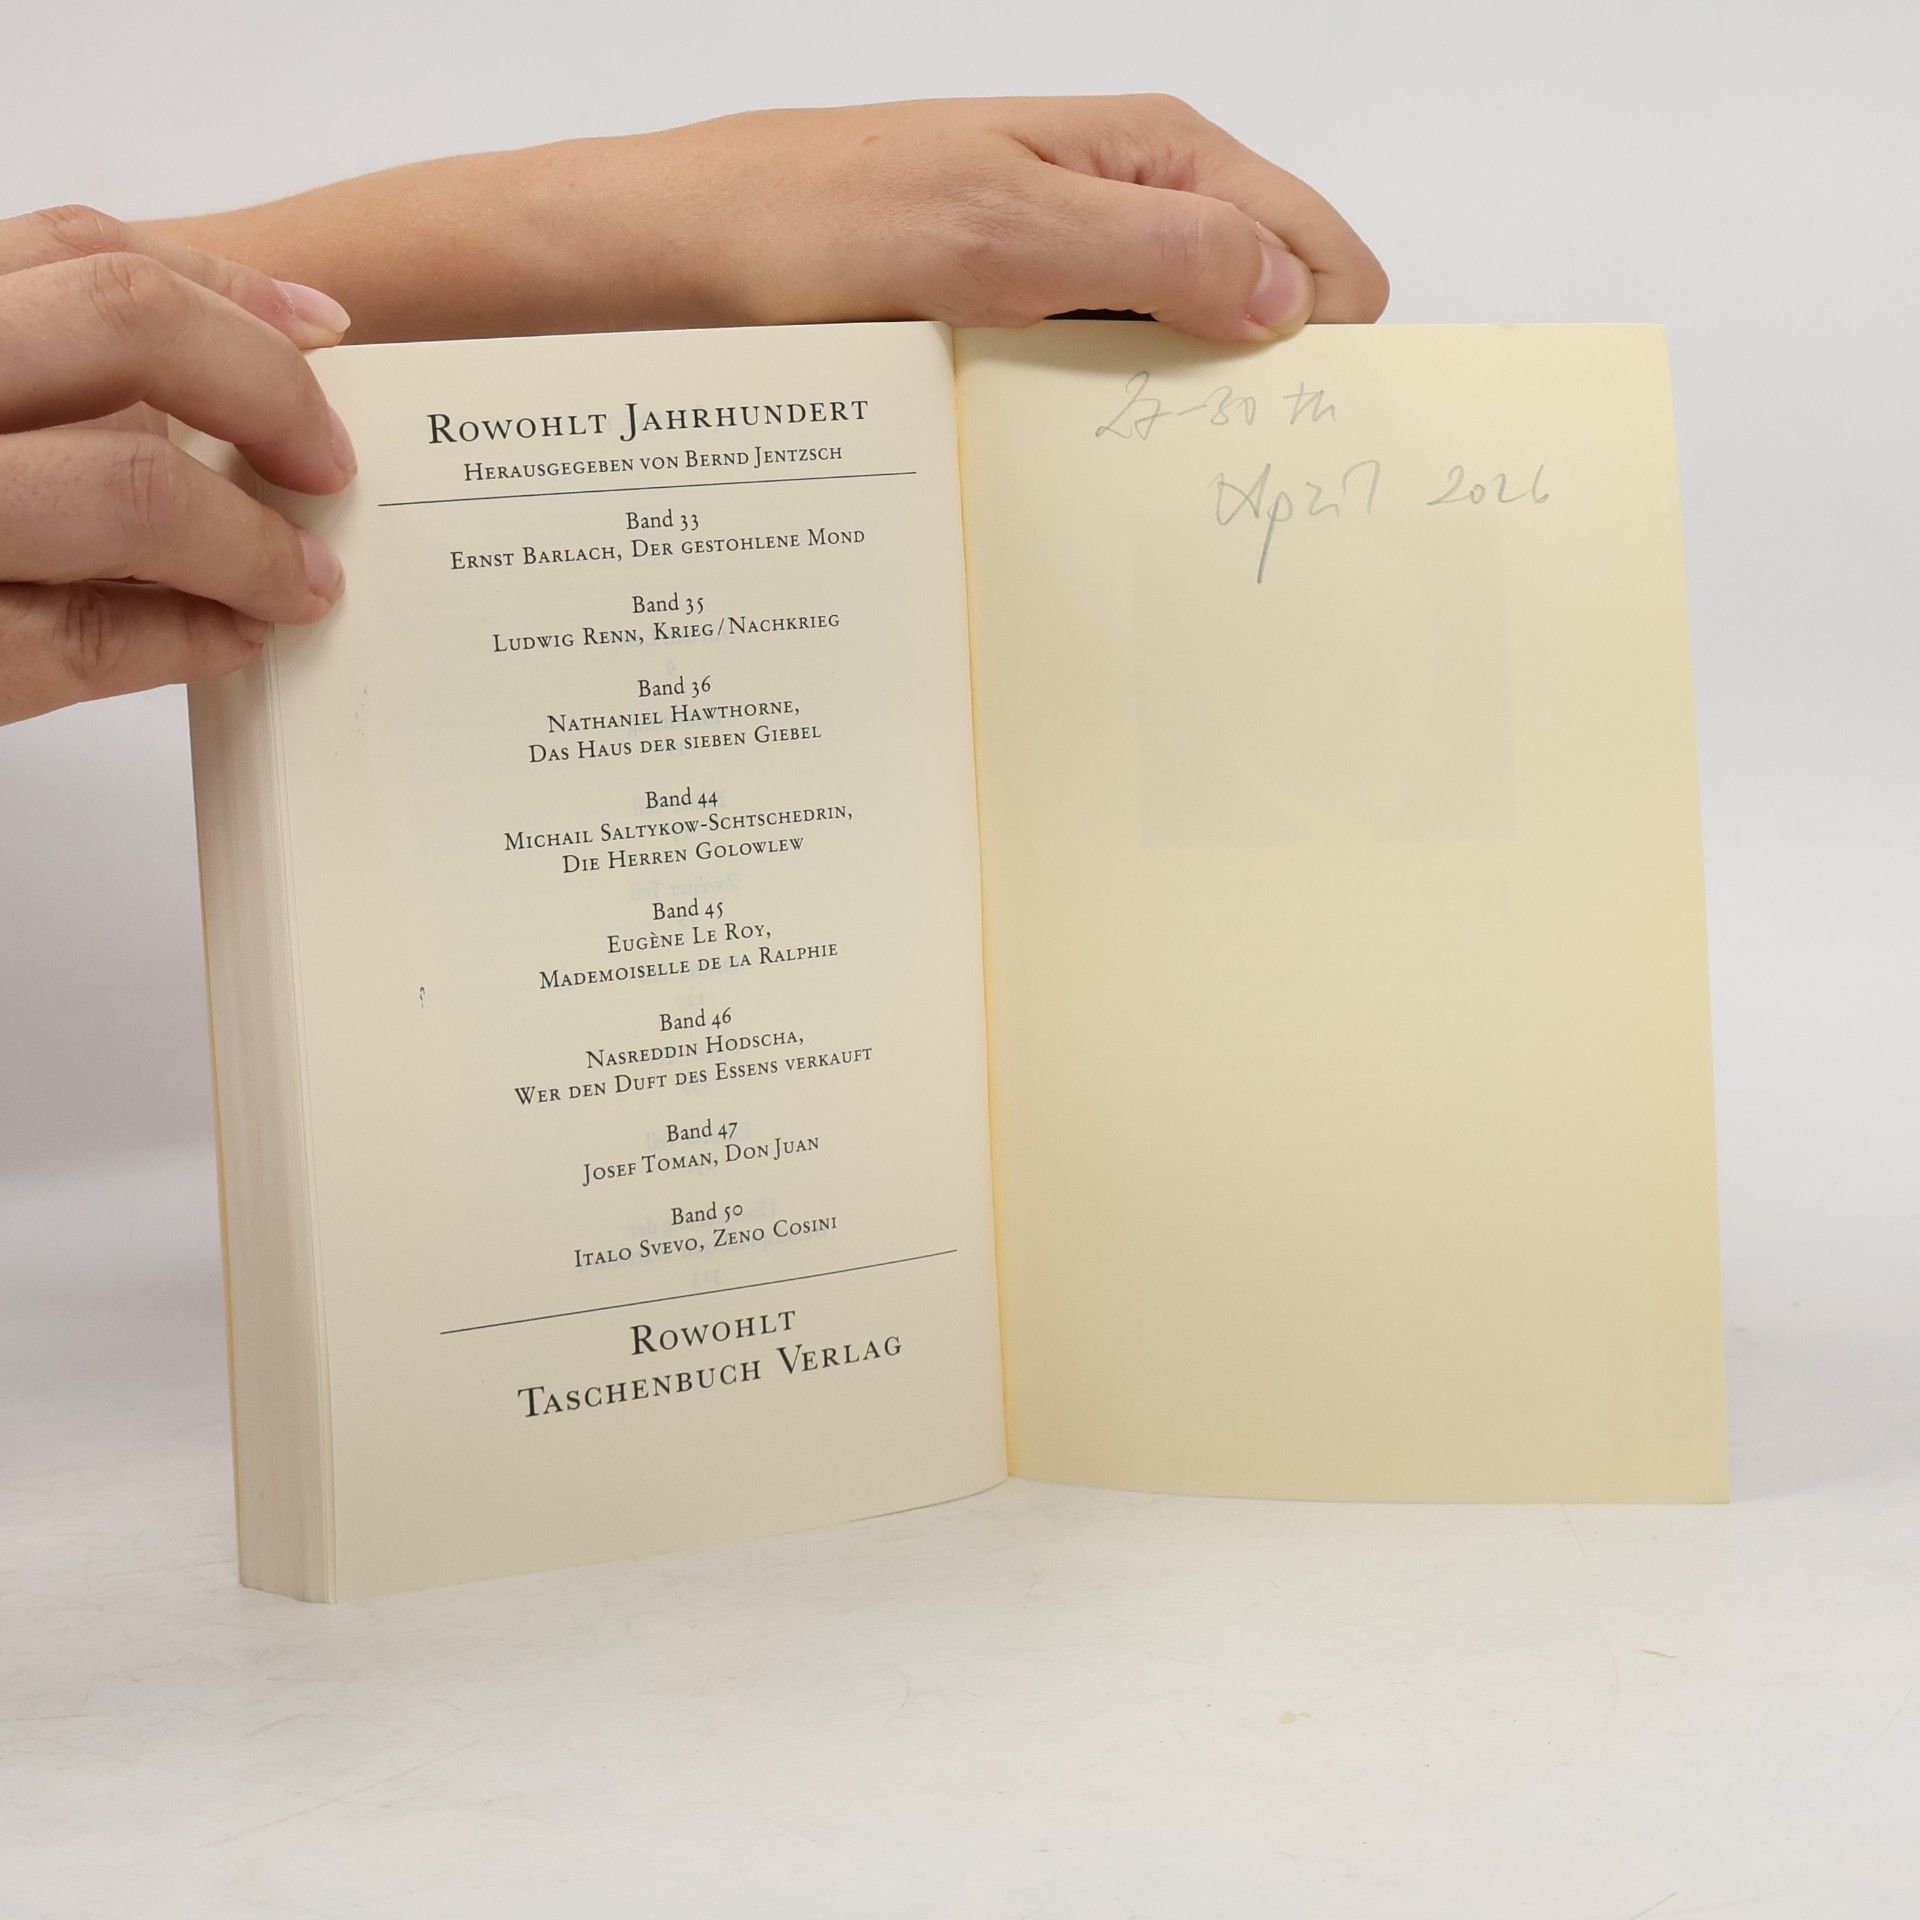 ROWOHLT JAHRHUNDERT
HERAUSGEGEBEN VON BERND JENTZSCH
Band 33
ERNST BARLACH, DER GESTOHLENE MOND
Band 35
LUDWIG RENN, KRIEG/NACHKRIEG
Band 36
NATHANIEL HAWTHORNE,
DAS HAUS DER SIEBEN GIEBEL
Band 44
MICHAIL SALTYKOW-SCHTSCHEDRIN,
DIE HERREN GOLOWLEW
Band 45
EUGÈNE LE ROY,
MADEMOISELLE DE LA RALPHIE
Band 46
NASREDDIN HODSCHA,
WER DEN DUFT DES ESSENS VERKAUFT
Band 47
JOSEF TOMAN, DON JUAN
Band 50
ITALO SVEVO, ZENO COSINI
ROWOHLT
TASCHENBUCH VERLAG
27-30 th
April 2026